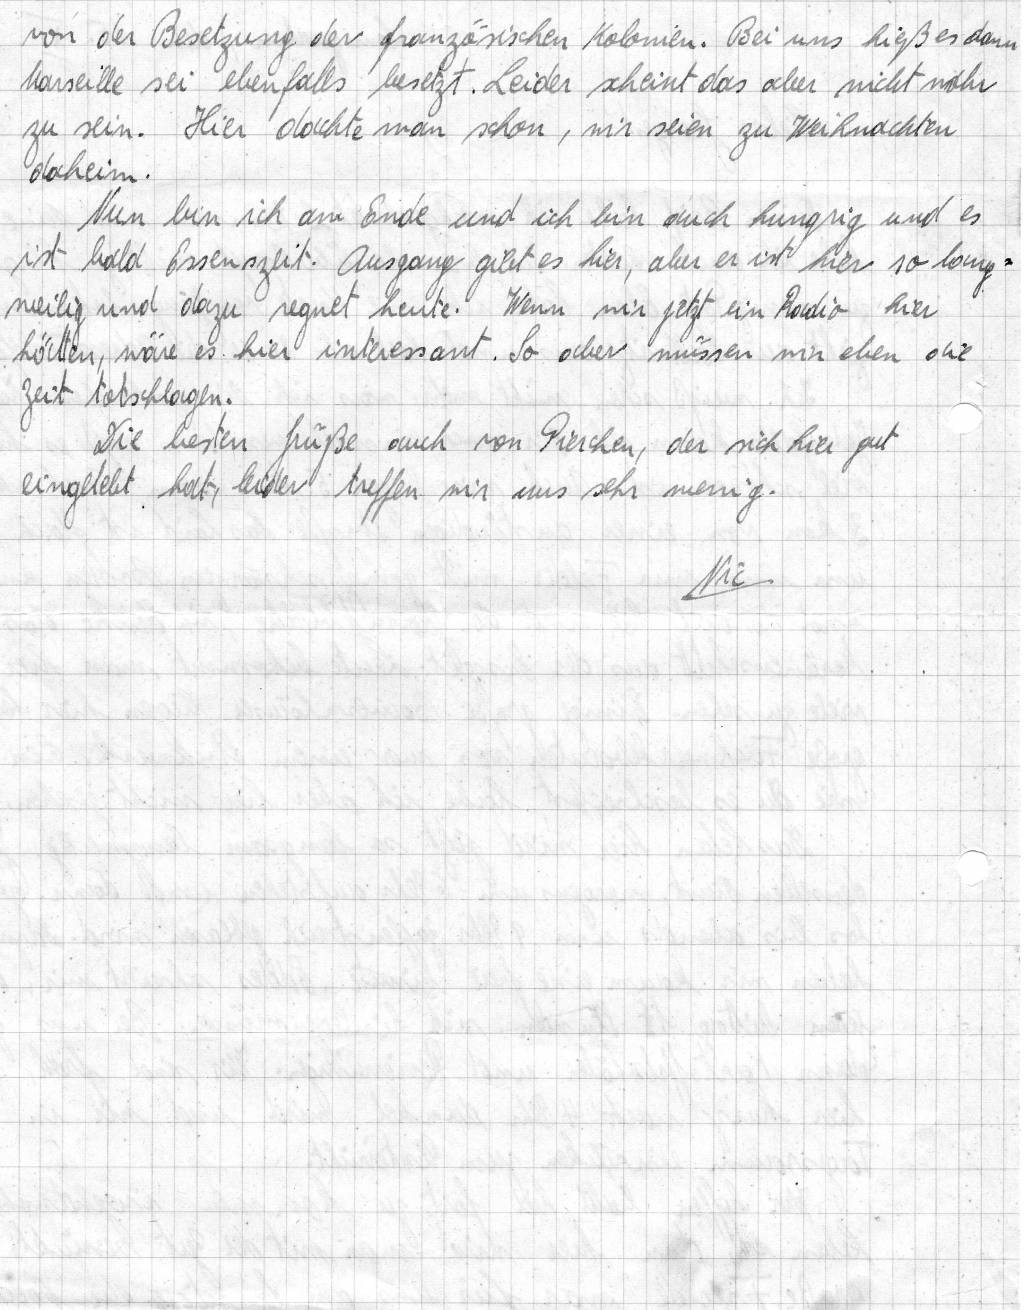 von der Besetzung der französischen Kolonien. Bei uns hieß es dann
Marseille sei ebenfalls besetzt. Leider scheint das aber nicht wahr
zu sein. Hier dachte man schon, wir seien zu Weihnachten
daheim.
Nun bin ich am Ende und ich bin auch hungrig und es
ist bald Essenszeit. Ausgang gibt es hier, aber er ist hier so lang=
weilig und dazu regnet heute. Wenn wir jetzt ein Radio hier
hätten, wäre es hier interessant. So aber müssen wir eben die
Zeit totschlagen.
Die besten Grüße auch von Pierchen, der sich hier gut
eingelebt hat, leider treffen wir uns sehr wenig.
Nic